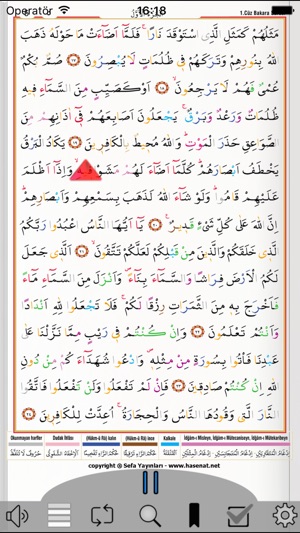 Operatör 16:18
1.Cüz Bakara
مَثَلُهُمْ كَمَثَلِ الَّذِى اسْتَوْقَدَ نَارًا ۚ فَلَمَّٓا اَضَٓاءَتْ مَا حَوْلَهُ ذَهَبَ
اللّٰهُ بِنُورِهِمْ وَتَرَكَهُمْ فِى ظُلُمَاتٍ لَا يُبْصِرُونَ ﴿١٧﴾ صُمٌّ بُكْمٌ
عُمْىٌ فَهُمْ لَا يَرْجِعُونَ ۙ ﴿١٨﴾ اَوْ كَصَيِّبٍ مِنَ السَّمَٓاءِ فِيهِ
ظُلُمَاتٌ وَرَعْدٌ وَبَرْقٌ ۚ يَجْعَلُونَ اَصَابِعَهُمْ فِٓى اٰذَانِهِمْ مِنَ
الصَّوَاعِقِ حَذَرَ الْمَوْتِ ؕ وَاللّٰهُ مُحِيطٌ بِالْكَافِرِينَ ﴿١٩﴾ يَكَادُ الْبَرْقُ
يَخْطَفُ اَبْصَارَهُمْ ؕ كُلَّمَٓا اَضَٓاءَ لَهُمْ مَشَوْا فِيهِ ۙ وَاِذَٓا اَظْلَمَ
عَلَيْهِمْ قَامُوا ؕ وَلَوْ شَٓاءَ اللّٰهُ لَذَهَبَ بِسَمْعِهِمْ وَاَبْصَارِهِمْ ؕ
اِنَّ اللّٰهَ عَلٰى كُلِّ شَىْءٍ قَدِيرٌ ۟ ﴿٢٠﴾ يَٓا اَيُّهَا النَّاسُ اعْبُدُوا رَبَّكُمُ
الَّذِى خَلَقَكُمْ وَالَّذِينَ مِنْ قَبْلِكُمْ لَعَلَّكُمْ تَتَّقُونَ ۙ ﴿٢١﴾ اَلَّذِى جَعَلَ
لَكُمُ الْاَرْضَ فِرَاشًا وَالسَّمَٓاءَ بِنَٓاءً ۖ وَاَنْزَلَ مِنَ السَّمَٓاءِ مَٓاءً
فَاَخْرَجَ بِهِ مِنَ الثَّمَرَاتِ رِزْقًا لَكُمْ ۚ فَلَا تَجْعَلُوا لِلّٰهِ اَنْدَادًا
وَاَنْتُمْ تَعْلَمُونَ ﴿٢٢﴾ وَاِنْ كُنْتُمْ فِى رَيْبٍ مِمَّا نَزَّلْنَا عَلٰى
عَبْدِنَا فَأْتُوا بِسُورَةٍ مِنْ مِثْلِهِ ۖ وَادْعُوا شُهَدَٓاءَكُمْ مِنْ دُونِ
اللّٰهِ اِنْ كُنْتُمْ صَادِقِينَ ﴿٢٣﴾ فَاِنْ لَمْ تَفْعَلُوا وَلَنْ تَفْعَلُوا فَاتَّقُوا
النَّارَ الَّتِى وَقُودُهَا النَّاسُ وَالْحِجَارَةُ ۚ اُعِدَّتْ لِلْكَافِرِينَ ﴿٢٤﴾
Okunmayan harfler Dudak İhfâsı (Hükm-ü Râ) kalın (Hükm-ü Râ) ince Kalkale İdğâm-ı Misleyn, İdğâm-ı Mütecaniseyn, İdğâm-ı Mütekaribeyn
copyright @ Sefa Yayınları - www.hasenat.net